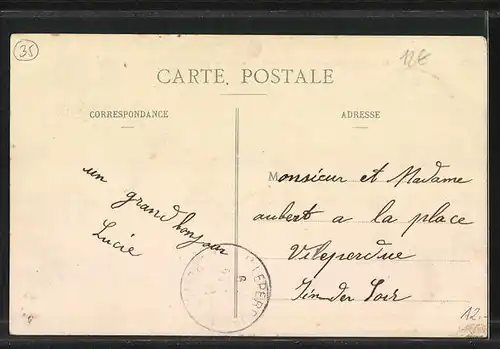 35
12€
CARTE POSTALE
CORRESPONDANCE
ADRESSE
un grand bonjour
Lucie
Monsieur et Madame
aubert a la place
Vileperdue
Indre Loir
LEPERD
12.-